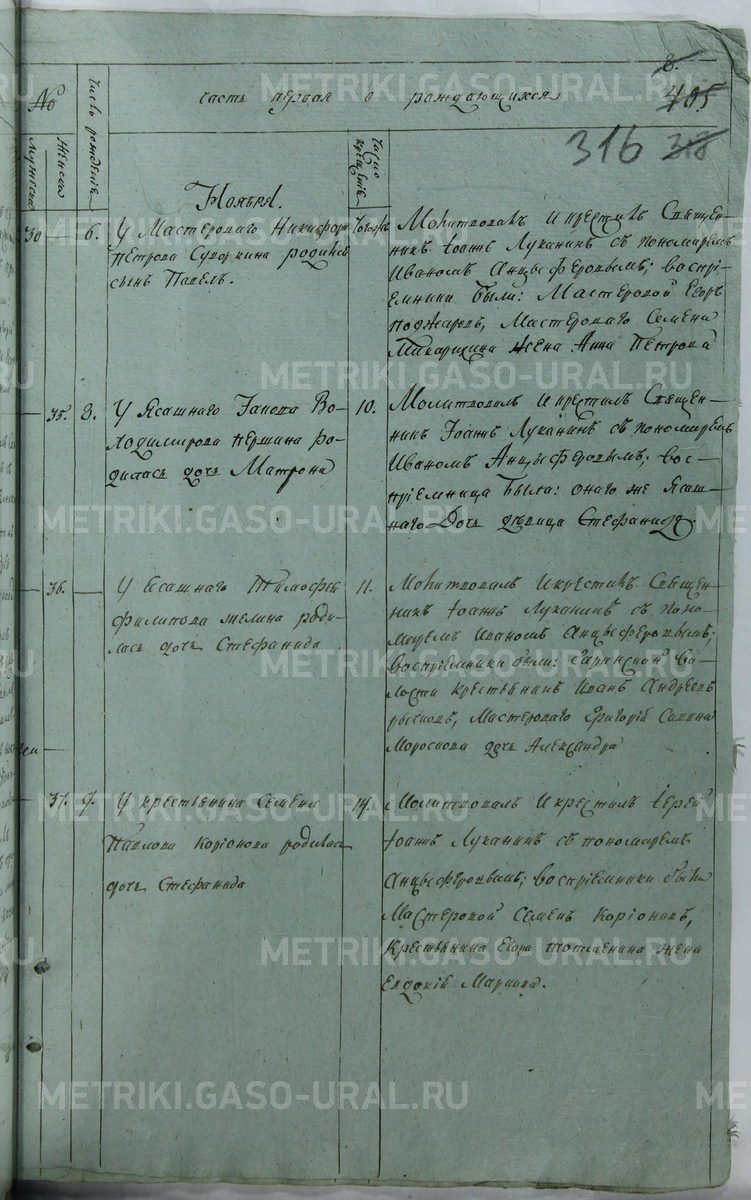 8.
405
316 318
№
Мужеска
Женска
Число рожденiя
Часть первая о раждающихся
Число крещенiя
Ноября.
30 6. У Мастероваго Никифора
Петрова родился
сынъ Павелъ.
Молитвовалъ и крестилъ Священ-
никъ Iоаннъ Луканинъ съ пономаремъ
Иваномъ Анцыферовымъ; воспрi-
емники были: Мастеровой Егоръ
Мастероваго Семена
жена Анна Петрова
35. 8. У Ясашнаго Во-
лодимирова Першина ро-
дилась дочь Матрона
10.
Молитвовалъ и крестилъ Священ-
никъ Iоаннъ Луканинъ съ пономаремъ
Иваномъ Анцыферовымъ; вос-
прiемница была: онаго же Ясаш-
наго дочь девица Стефанида.
36.
У Ясашнаго Тимофея
Филипова роди-
лась дочь Стефанида
11.
Молитвовалъ и крестилъ Священ-
никъ Iоаннъ Луканинъ съ поно-
марем Иваномъ Анцыферовымъ;
воспрiемники были: Гаринской во-
лости крестьянинъ Иванъ Андреевъ
Мастероваго
дочь Александра
37. 9. У крестьянина Семена
Павлова Корiонова родилась
дочь Стефанида
14.
Молитвовалъ и крестилъ Iерей
Iоаннъ Луканинъ съ пономаремъ
Анцыферовымъ; воспрiемники были
Мастеровой Семенъ Корiоновъ,
крестьянина Егора жена
Евдокiя Маркова.
METRIKI.GASO-URAL.RU